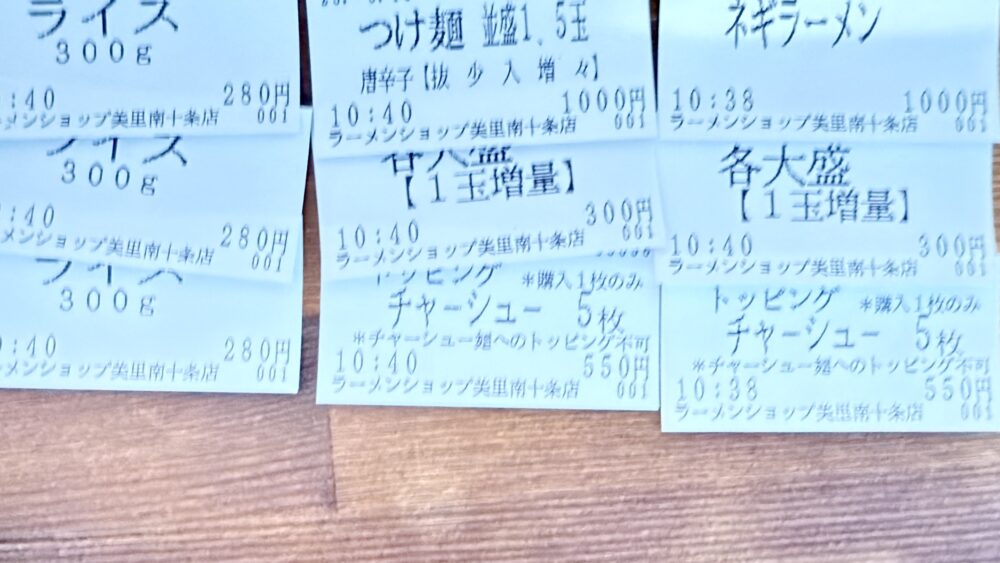 ライス
300g
:40 280円
ラーメンショップ美里南十条店 001
ライス
300g
:40 280円
ラーメンショップ美里南十条店 001
ライス
300g
:40 280円
ラーメンショップ美里南十条店 001
つけ麺 並盛1.5玉
唐辛子【抜 少 入 増 々】
10:40 1000円
ラーメンショップ美里南十条店 001
各大盛
【1玉増量】
10:40 300円
ラーメンショップ美里南十条店 001
トッピング *購入1枚のみ
チャーシュー 5枚
*チャーシュー麺へのトッピング不可
10:40 550円
ラーメンショップ美里南十条店 001
ネギラーメン
10:38 1000円
ラーメンショップ美里南十条店 001
各大盛
【1玉増量】
10:40 300円
ラーメンショップ美里南十条店 001
トッピング *購入1枚のみ
チャーシュー 5枚
*チャーシュー麺へのトッピング不可
10:38 550円
ラーメンショップ美里南十条店 001